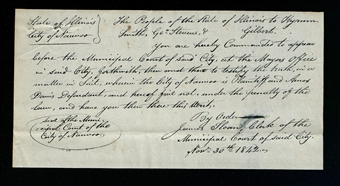 State of Illinois } The People of the State of Illinois to Hyrum
City of Nauvoo } Smith, Geo Stevens, & Gilbert.
You are hereby Commanded to appear
before the Municipal Court of said City, at the Mayors Office
in said City, forthwith, then and there to testify the truth, in a
matter in Suit, wherein the City of Nauvoo is Plaintiff and Amos
Davis Defendant, and hereof fail not, under the penalty of the
Law, and have you then there this Writ.
Seal of the Muni-
cipal Court of the
City of Nauvoo
By Order
James Sloan, Clerk of the
Municipal Court of said City.
Nov. 30th 1842